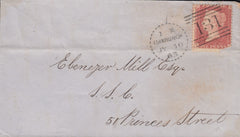 131
Ebenezer Mill Esqr.
S. S. C.
51 Princes Street